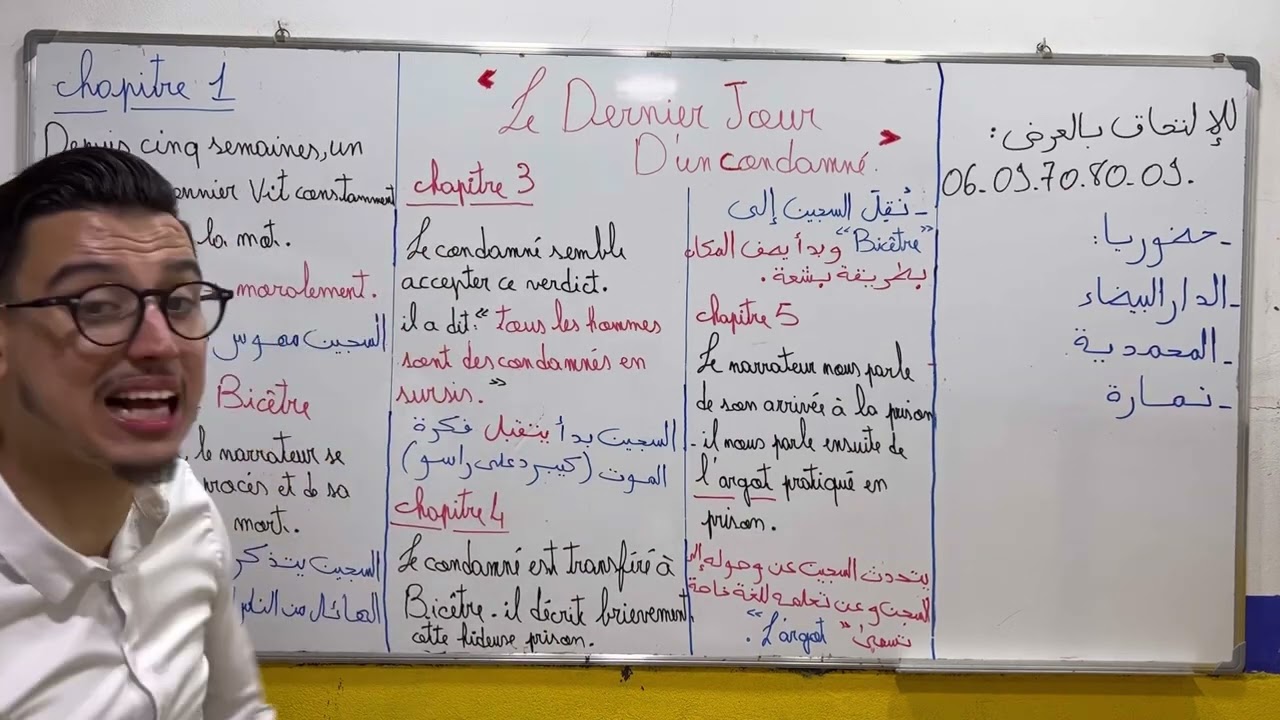 chapitre 1
Depuis cinq semaines, un
onnier vit constamment
la mot.
moralement.
السجين مهووس
Bicêtre
le narrateur se
rocès et de sa
mort.
السجين يتذكر
الهائل من الناس
"Le Dernier Jour
D'un condamné."
chapitre 3
Le condamné semble
accepter ce verdict.
il a dit: "tous les hommes
sont des condamnés en
sursis."
السجين بدأ يتقبل فكرة
الموت (كيبرد على راسو)
chapitre 4
Le condamné est transféré à
Bicêtre - il décrit brievement
cette hideuse prison.
- نُقِلَ السجين إلى
"Bicêtre" وبدأ يصف المكان
بطريقة بشعة.
chapitre 5
Le narrateur nous parle
de son arrivée à la prison
- il nous parle ensuite de
l'argot pratiqué en
prison.
يتحدث السجين عن وصوله إلى
السجن وعن تعلمه للغة خاصة
تسمى "L'argot".
للإلتحاق بالعرض:
06.09.70.80.09.
- حضوريا:
- الدار البيضاء
- المحمدية
- تمارة